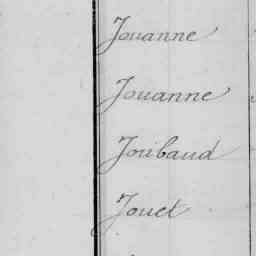 Jouanne
Jouanne
Joribaud
Jouet